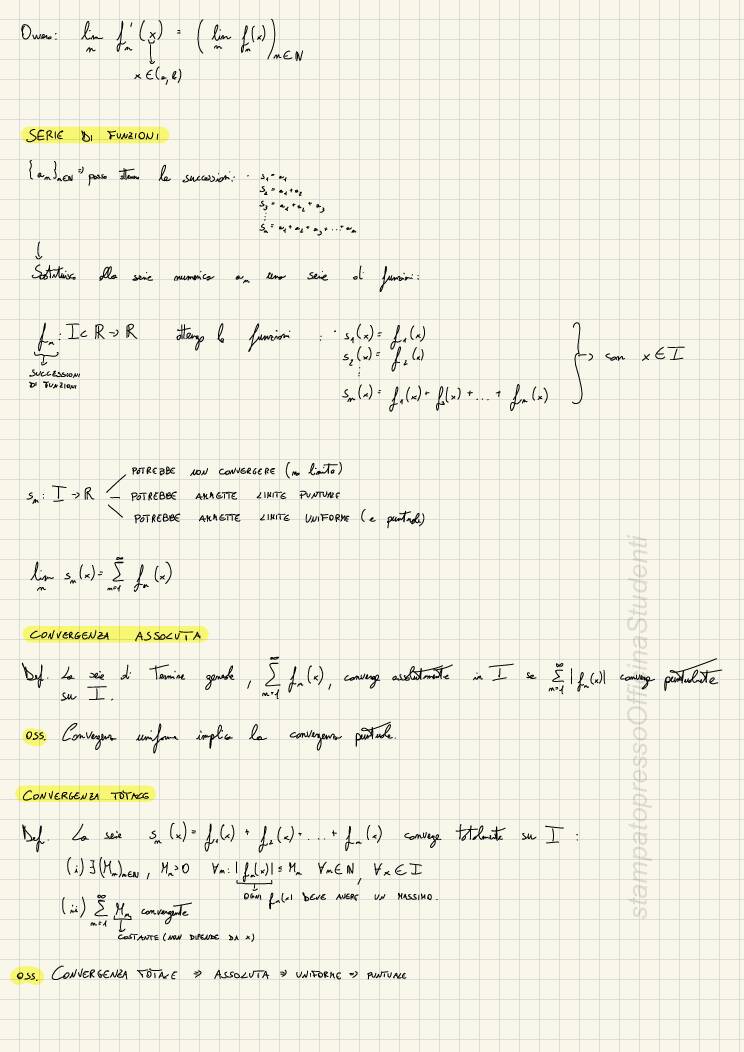 Ovvero: lim_n f'_n(x) = (lim_n f_n(x))_{n∈N}
x∈(a,b)
SERIE DI FUNZIONI
{a_n}_{n∈N} ⇒ posso ottenere le successioni: · s_1 = a_1
s_2 = a_1+a_2
s_3 = a_1+a_2+a_3
⋮
s_n = a_1+a_2+a_3+...+a_n
↓
Sostituisco alla serie numerica a_n una serie di funzioni:
f_n: I⊂R→R ottengo le funzioni : · s_1(x) = f_1(x)
s_2(x) = f_2(x)
⋮
s_n(x) = f_1(x)+f_2(x)+...+f_n(x)
} → con x∈I
SUCCESSIONI
DI FUNZIONI
s_n: I→R
POTREBBE NON CONVERGERE (no limite)
POTREBBE AMMETTE LIMITE PUNTUALE
POTREBBE AMMETTE LIMITE UNIFORME (e puntuale)
lim_n s_n(x) = ∑_{n=1}^∞ f_n(x)
CONVERGENZA ASSOLUTA
Def. La serie di Termine generale, ∑_{n=1}^∞ f_n(x), converge assolutamente in I se ∑_{n=1}^∞ |f_n(x)| converge puntualmente
su I.
OSS. Convergenza uniforme implica la convergenza puntuale.
CONVERGENZA TOTALE
Def. La serie s_n(x) = f_1(x) + f_2(x)+...+f_n(x) converge totalmente su I :
(i) ∃(M_n)_{n∈N}, M_n>0 ∀n: |f_n(x)| ≤ M_n ∀n∈N, ∀x∈I
OGNI f_n(x) DEVE AVERE UN MASSIMO.
(ii) ∑_{n=1}^∞ M_n convergente
COSTANTE (NON DIPENDE DA x)
OSS. CONVERGENZA TOTALE ⇒ ASSOLUTA ⇒ UNIFORME ⇒ PUNTUALE
stampatopressoOfficinaStudenti